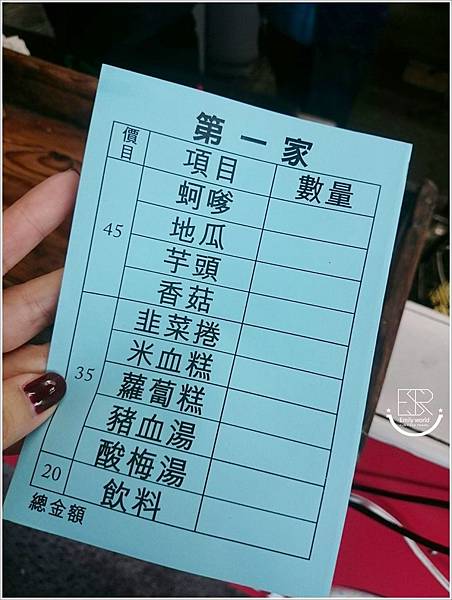 第一家
價目 項目 數量
45 蚵嗲
地瓜
芋頭
香菇
35 韭菜捲
米血糕
蘿蔔糕
豬血湯
酸梅湯
20 飲料
總金額
ESR
Emily world